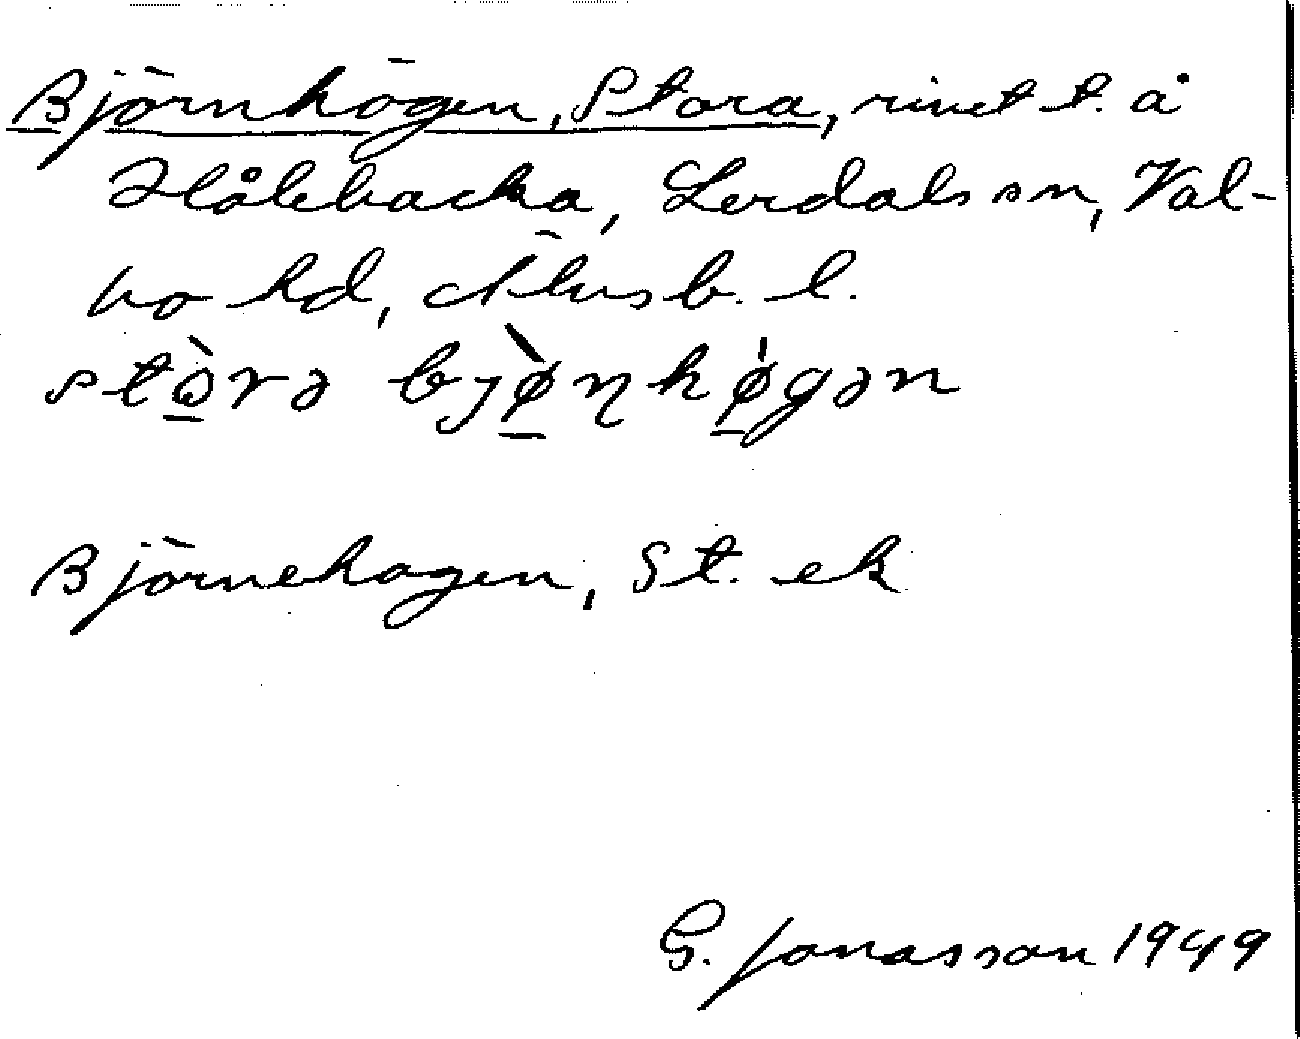 Björnhögen, Stora, rivet t. å
Hålebacka, Lerdals sn, Val-
bo hd, Älvsb. l.
stò̱rə bjø̱̀ɳhǿ̱gən
Björnehagen, St. ek
G. Jonasson 1949